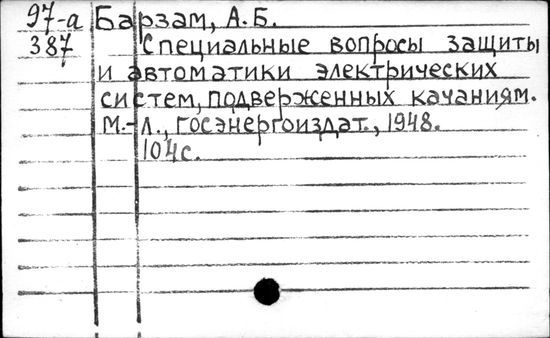 97-а Барзам, А.Б.
387 Специальные вопросы защиты
и автоматики электрических
систем, подверженных качаниям.
М.-Л., Госэнергоиздат., 1948.
104с.